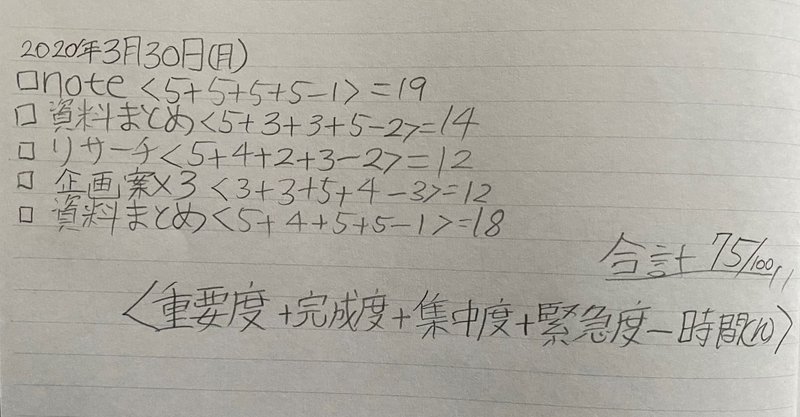 2020年3月30日(月)
□note〈5+5+5+5-1〉=19
□ 資料まとめ〈5+3+3+5-2〉=14
□ リサーチ〈5+4+2+3-2〉=12
□ 企画案×3〈3+3+5+4-3〉=12
□ 資料まとめ〈5+4+5+5-1〉=18
合計 75/100,,
〈重要度+完成度+集中度+緊急度-時間(h)〉